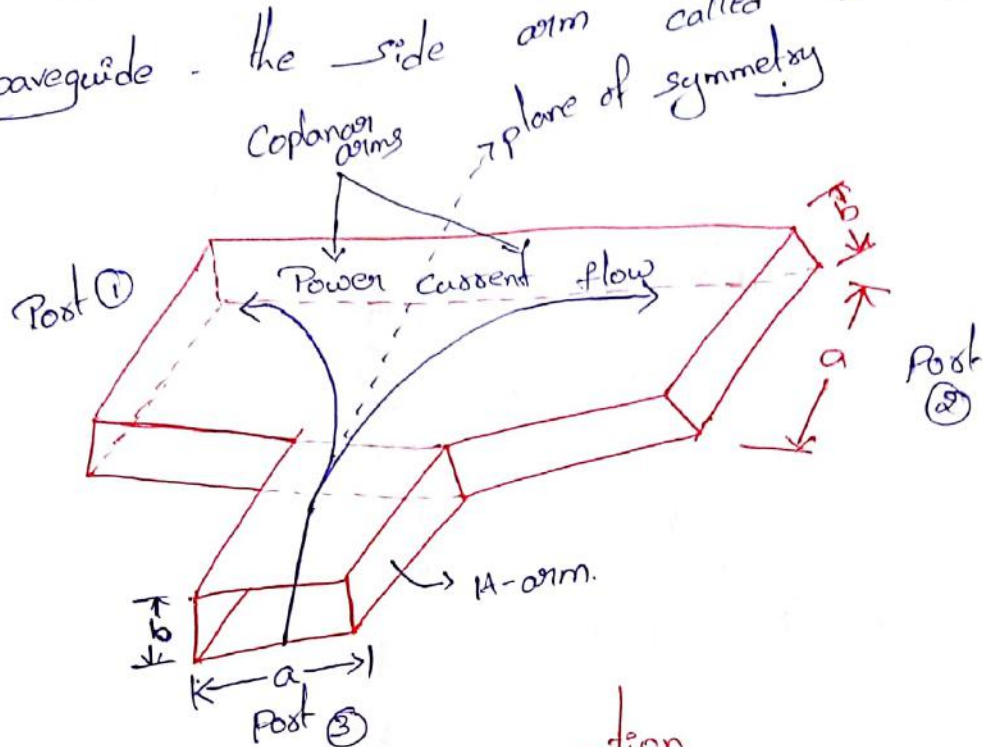 waveguide - the side arm called
Coplanar
arms
plane of symmetry
Port ①
Power current flow
b
a
Port
②
H-arm.
b
a
Port ③